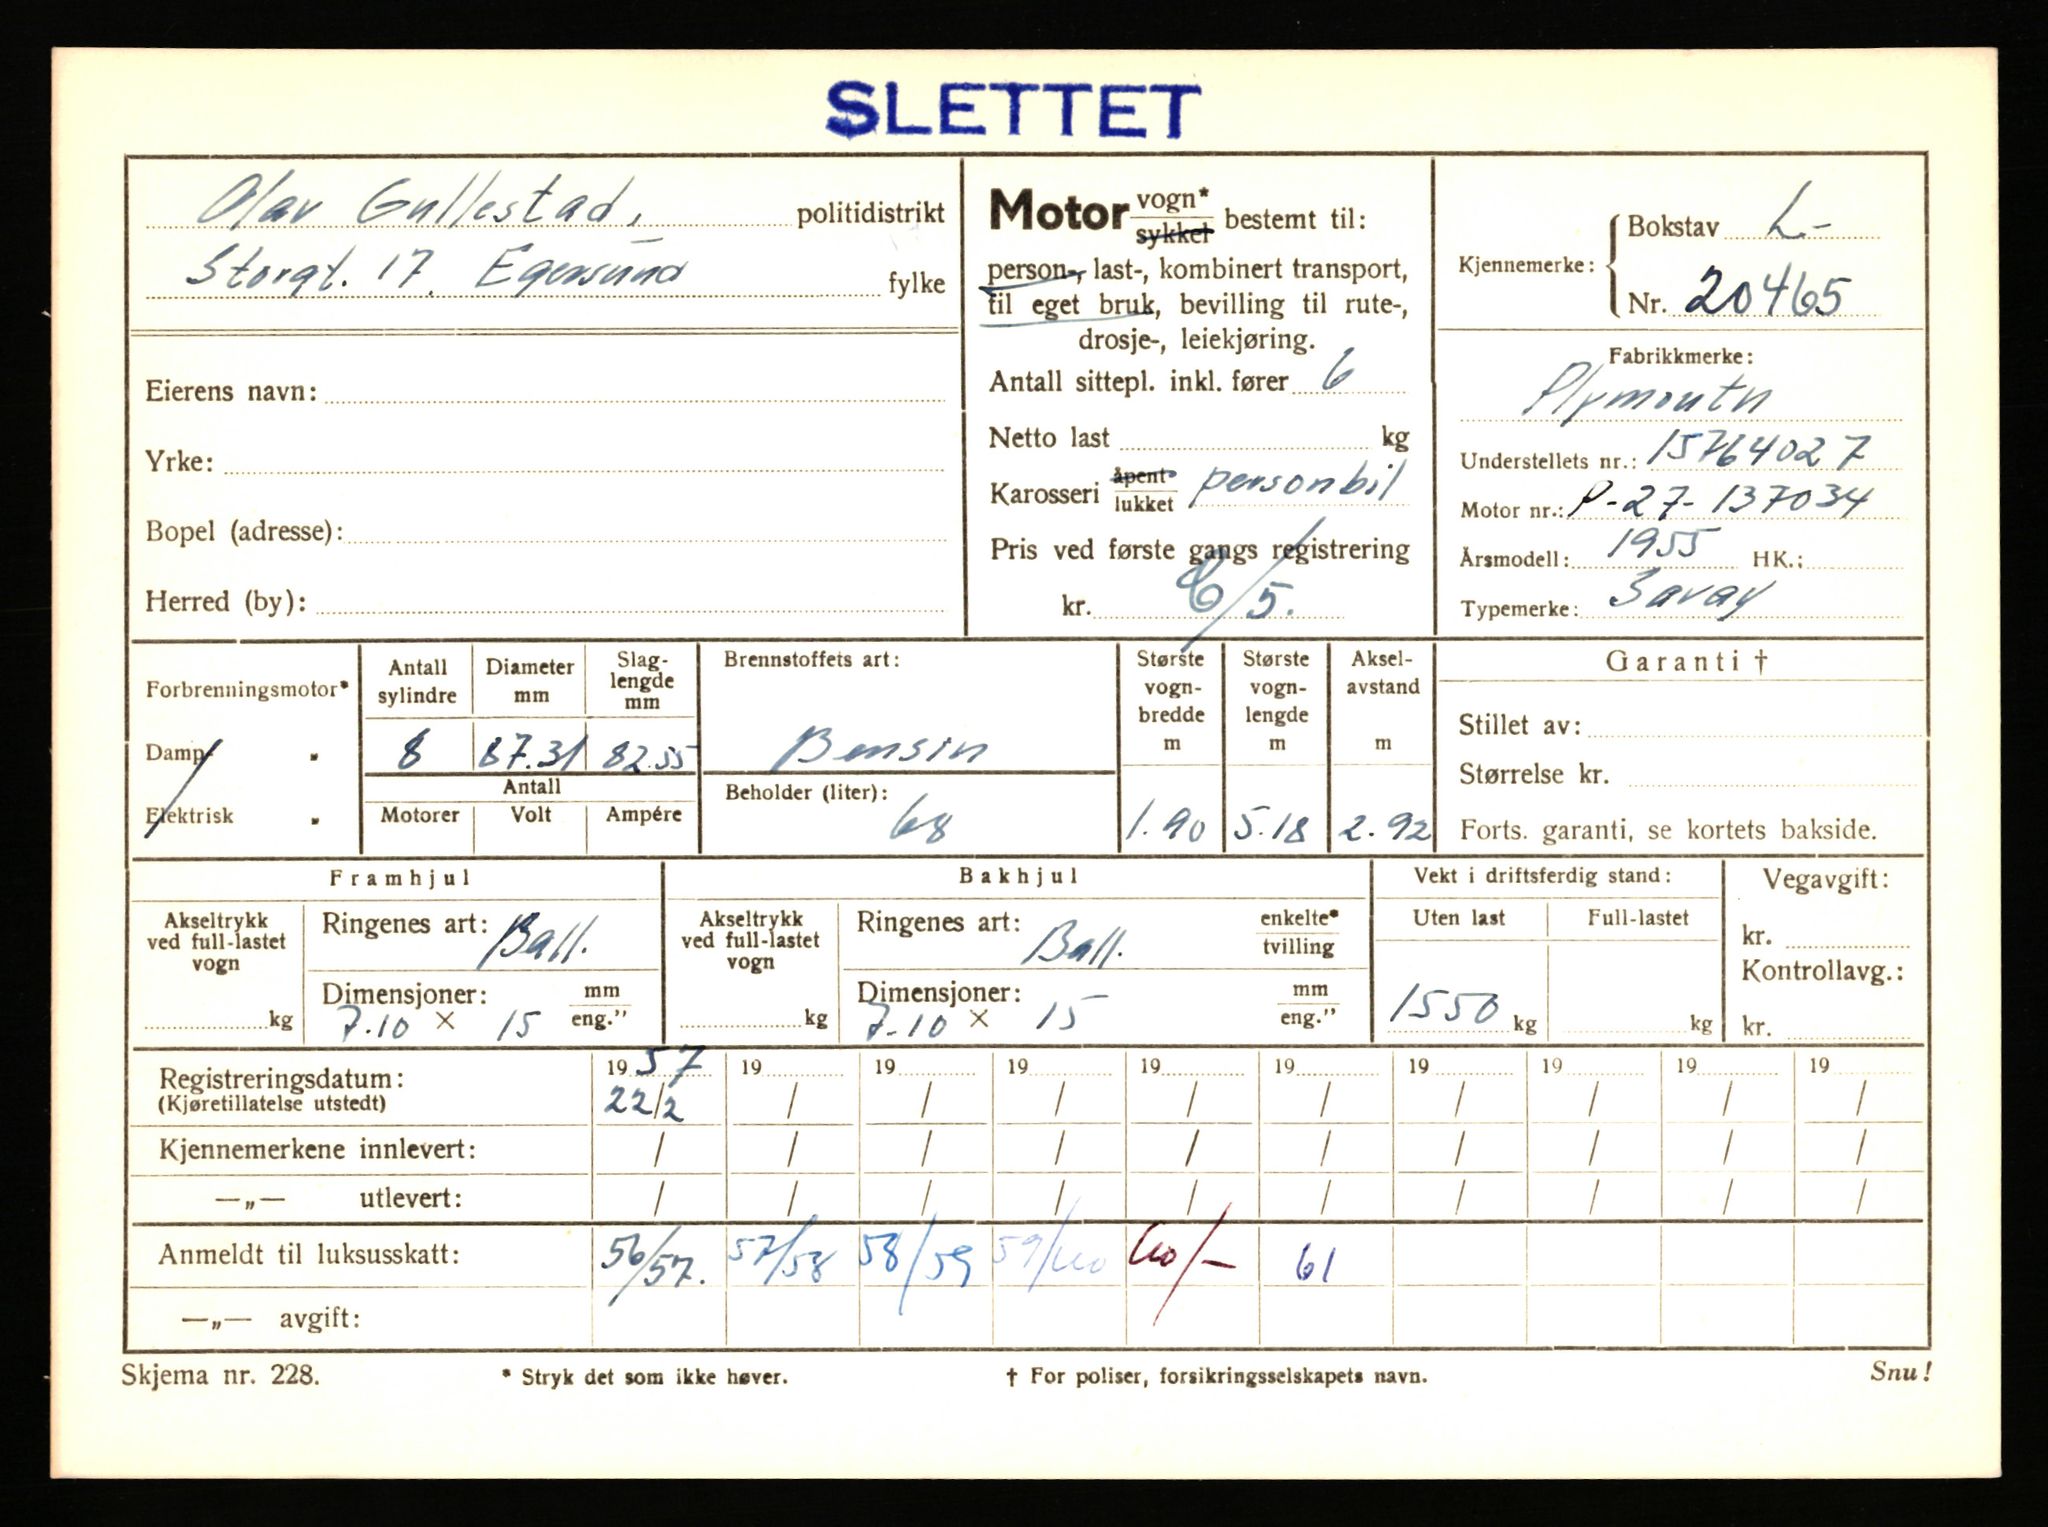 SLETTET
Olav Gullestad, politidistrikt
Storgt. 17. Egersund fylke
Eierens navn:
Yrke:
Bopel (adresse):
Herred (by):
Motor vogn* sykkel bestemt til:
person-, last-, kombinert transport,
til eget bruk, bevilling til rute-,
drosje-, leiekjøring.
Antall sittepl. inkl. fører 6
Netto last kg
Karosseri åpent lukket personbil
Pris ved første gangs registrering
kr. /5.
Kjennemerke: Bokstav L-
Nr. 20465
Fabrikkmerke:
Plymouth
Understellets nr.: 15764027
Motor nr.: P-27-137034
Årsmodell: 1955 HK.:
Typemerke: Savay
Forbrenningsmotor*
Damp- „
Elektrisk „
Antall sylindre Diameter mm Slag-lengde mm
8 87.31 82.55
Antall
Motorer Volt Ampére
Brennstoffets art:
Bensin
Beholder (liter):
68
Største vogn-bredde m Største vogn-lengde m Aksel-avstand m
1.90 5.18 2.92
Garanti †
Stillet av:
Størrelse kr.
Forts. garanti, se kortets bakside.
Framhjul
Akseltrykk ved full-lastet vogn
kg
Ringenes art: Ball.
Dimensjoner: mm
7.10 × 15 eng.”
Bakhjul
Akseltrykk ved full-lastet vogn
kg
Ringenes art: Ball. enkelte* tvilling
Dimensjoner: mm
7.10 × 15 eng.”
Vekt i driftsferdig stand:
Uten last Full-lastet
1550 kg kg
Vegavgift:
kr.
Kontrollavg.:
kr.
Registreringsdatum: 1957 19 19 19 19 19 19 19 19 19
(Kjøretillatelse utstedt) 22/2 / / / / / / / / /
Kjennemerkene innlevert: / / / / / / / / / /
—„— utlevert: / / / / / / / / / /
Anmeldt til luksusskatt: 56/57. 57/58 58/59 59/60 60/- 61
—„— avgift:
Skjema nr. 228. * Stryk det som ikke høver. † For poliser, forsikringsselskapets navn. Snu!